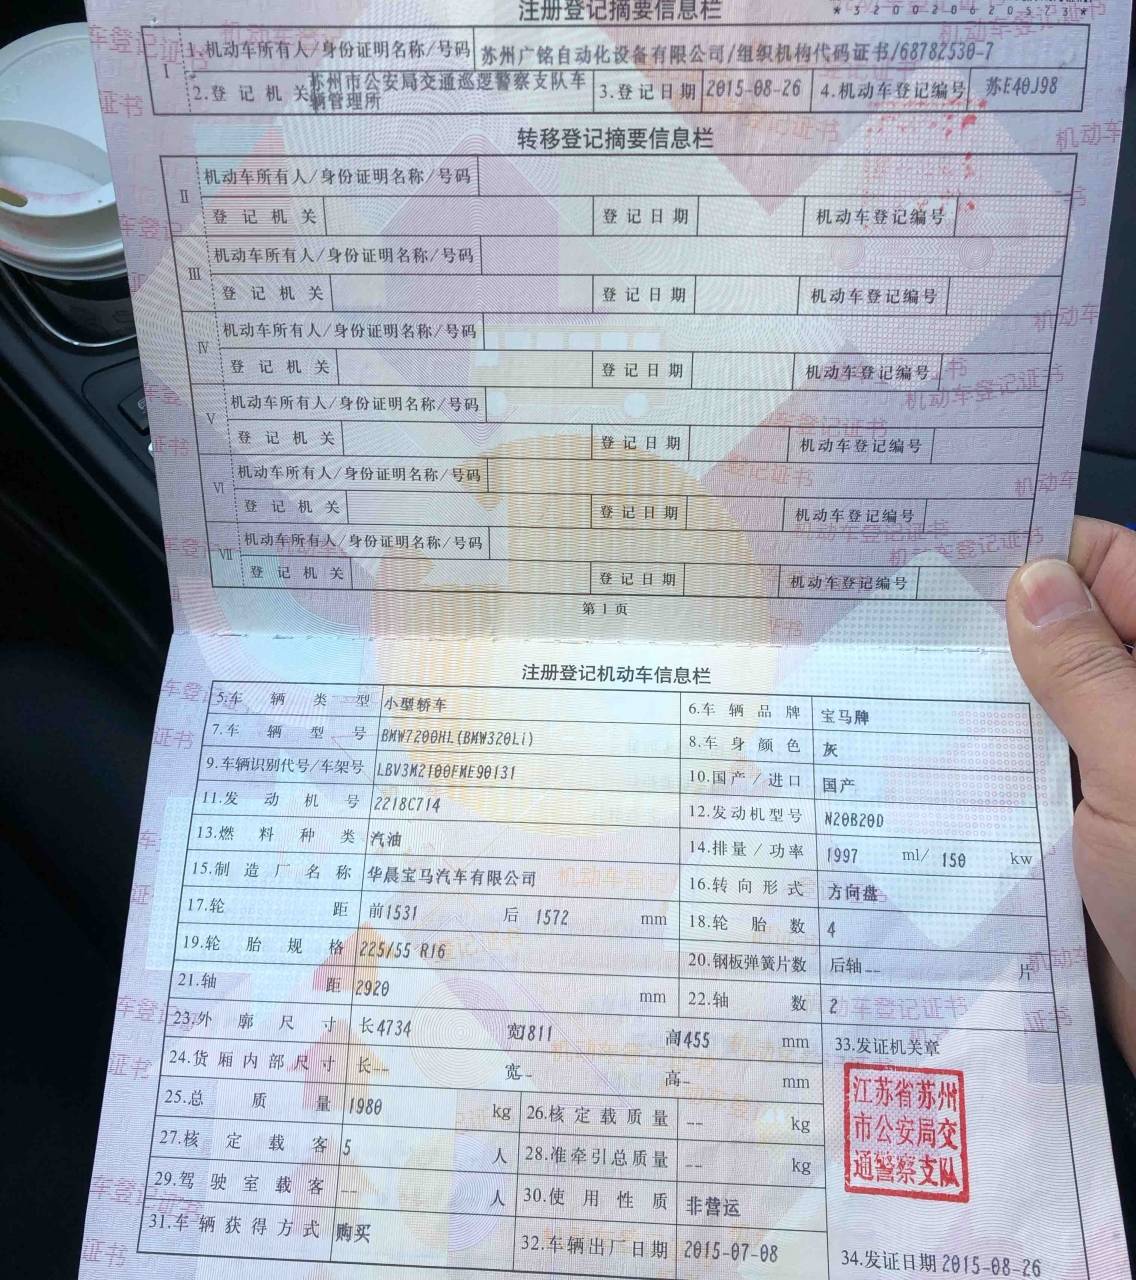 注册登记摘要信息栏
*320020620573*
I
1.机动车所有人/身份证明名称/号码 苏州广铭自动化设备有限公司/组织机构代码证书/68782530-7
2.登记机关 苏州市公安局交通巡逻警察支队车辆管理所 3.登记日期 2015-08-26 4.机动车登记编号 苏E40J98
转移登记摘要信息栏
II 机动车所有人/身份证明名称/号码
登记机关 登记日期 机动车登记编号
III 机动车所有人/身份证明名称/号码
登记机关 登记日期 机动车登记编号
IV 机动车所有人/身份证明名称/号码
登记机关 登记日期 机动车登记编号
V 机动车所有人/身份证明名称/号码
登记机关 登记日期 机动车登记编号
VI 机动车所有人/身份证明名称/号码
登记机关 登记日期 机动车登记编号
VII 机动车所有人/身份证明名称/号码
登记机关 登记日期 机动车登记编号
第1页
注册登记机动车信息栏
5.车辆类型 小型轿车 6.车辆品牌 宝马牌
7.车辆型号 BMW7200HL(BMW320Li) 8.车身颜色 灰
9.车辆识别代号/车架号 LBV3M2100FME90131 10.国产/进口 国产
11.发动机号 2218C714 12.发动机型号 N20B20D
13.燃料种类 汽油 14.排量/功率 1997 ml/ 150 kw
15.制造厂名称 华晨宝马汽车有限公司 16.转向形式 方向盘
17.轮距 前1531 后 1572 mm 18.轮胎数 4
19.轮胎规格 225/55 R16 20.钢板弹簧片数 后轴-- 片
21.轴距 2920 mm 22.轴数 2
23.外廓尺寸 长4734 宽1811 高1455 mm 33.发证机关章
24.货厢内部尺寸 长-- 宽- 高- mm
25.总质量 1980 kg 26.核定载质量 -- kg
27.核定载客 5 人 28.准牵引总质量 -- kg
29.驾驶室载客 -- 人 30.使用性质 非营运
31.车辆获得方式 购买 32.车辆出厂日期 2015-07-08 34.发证日期 2015-08-26
江苏省苏州
市公安局交
通警察支队